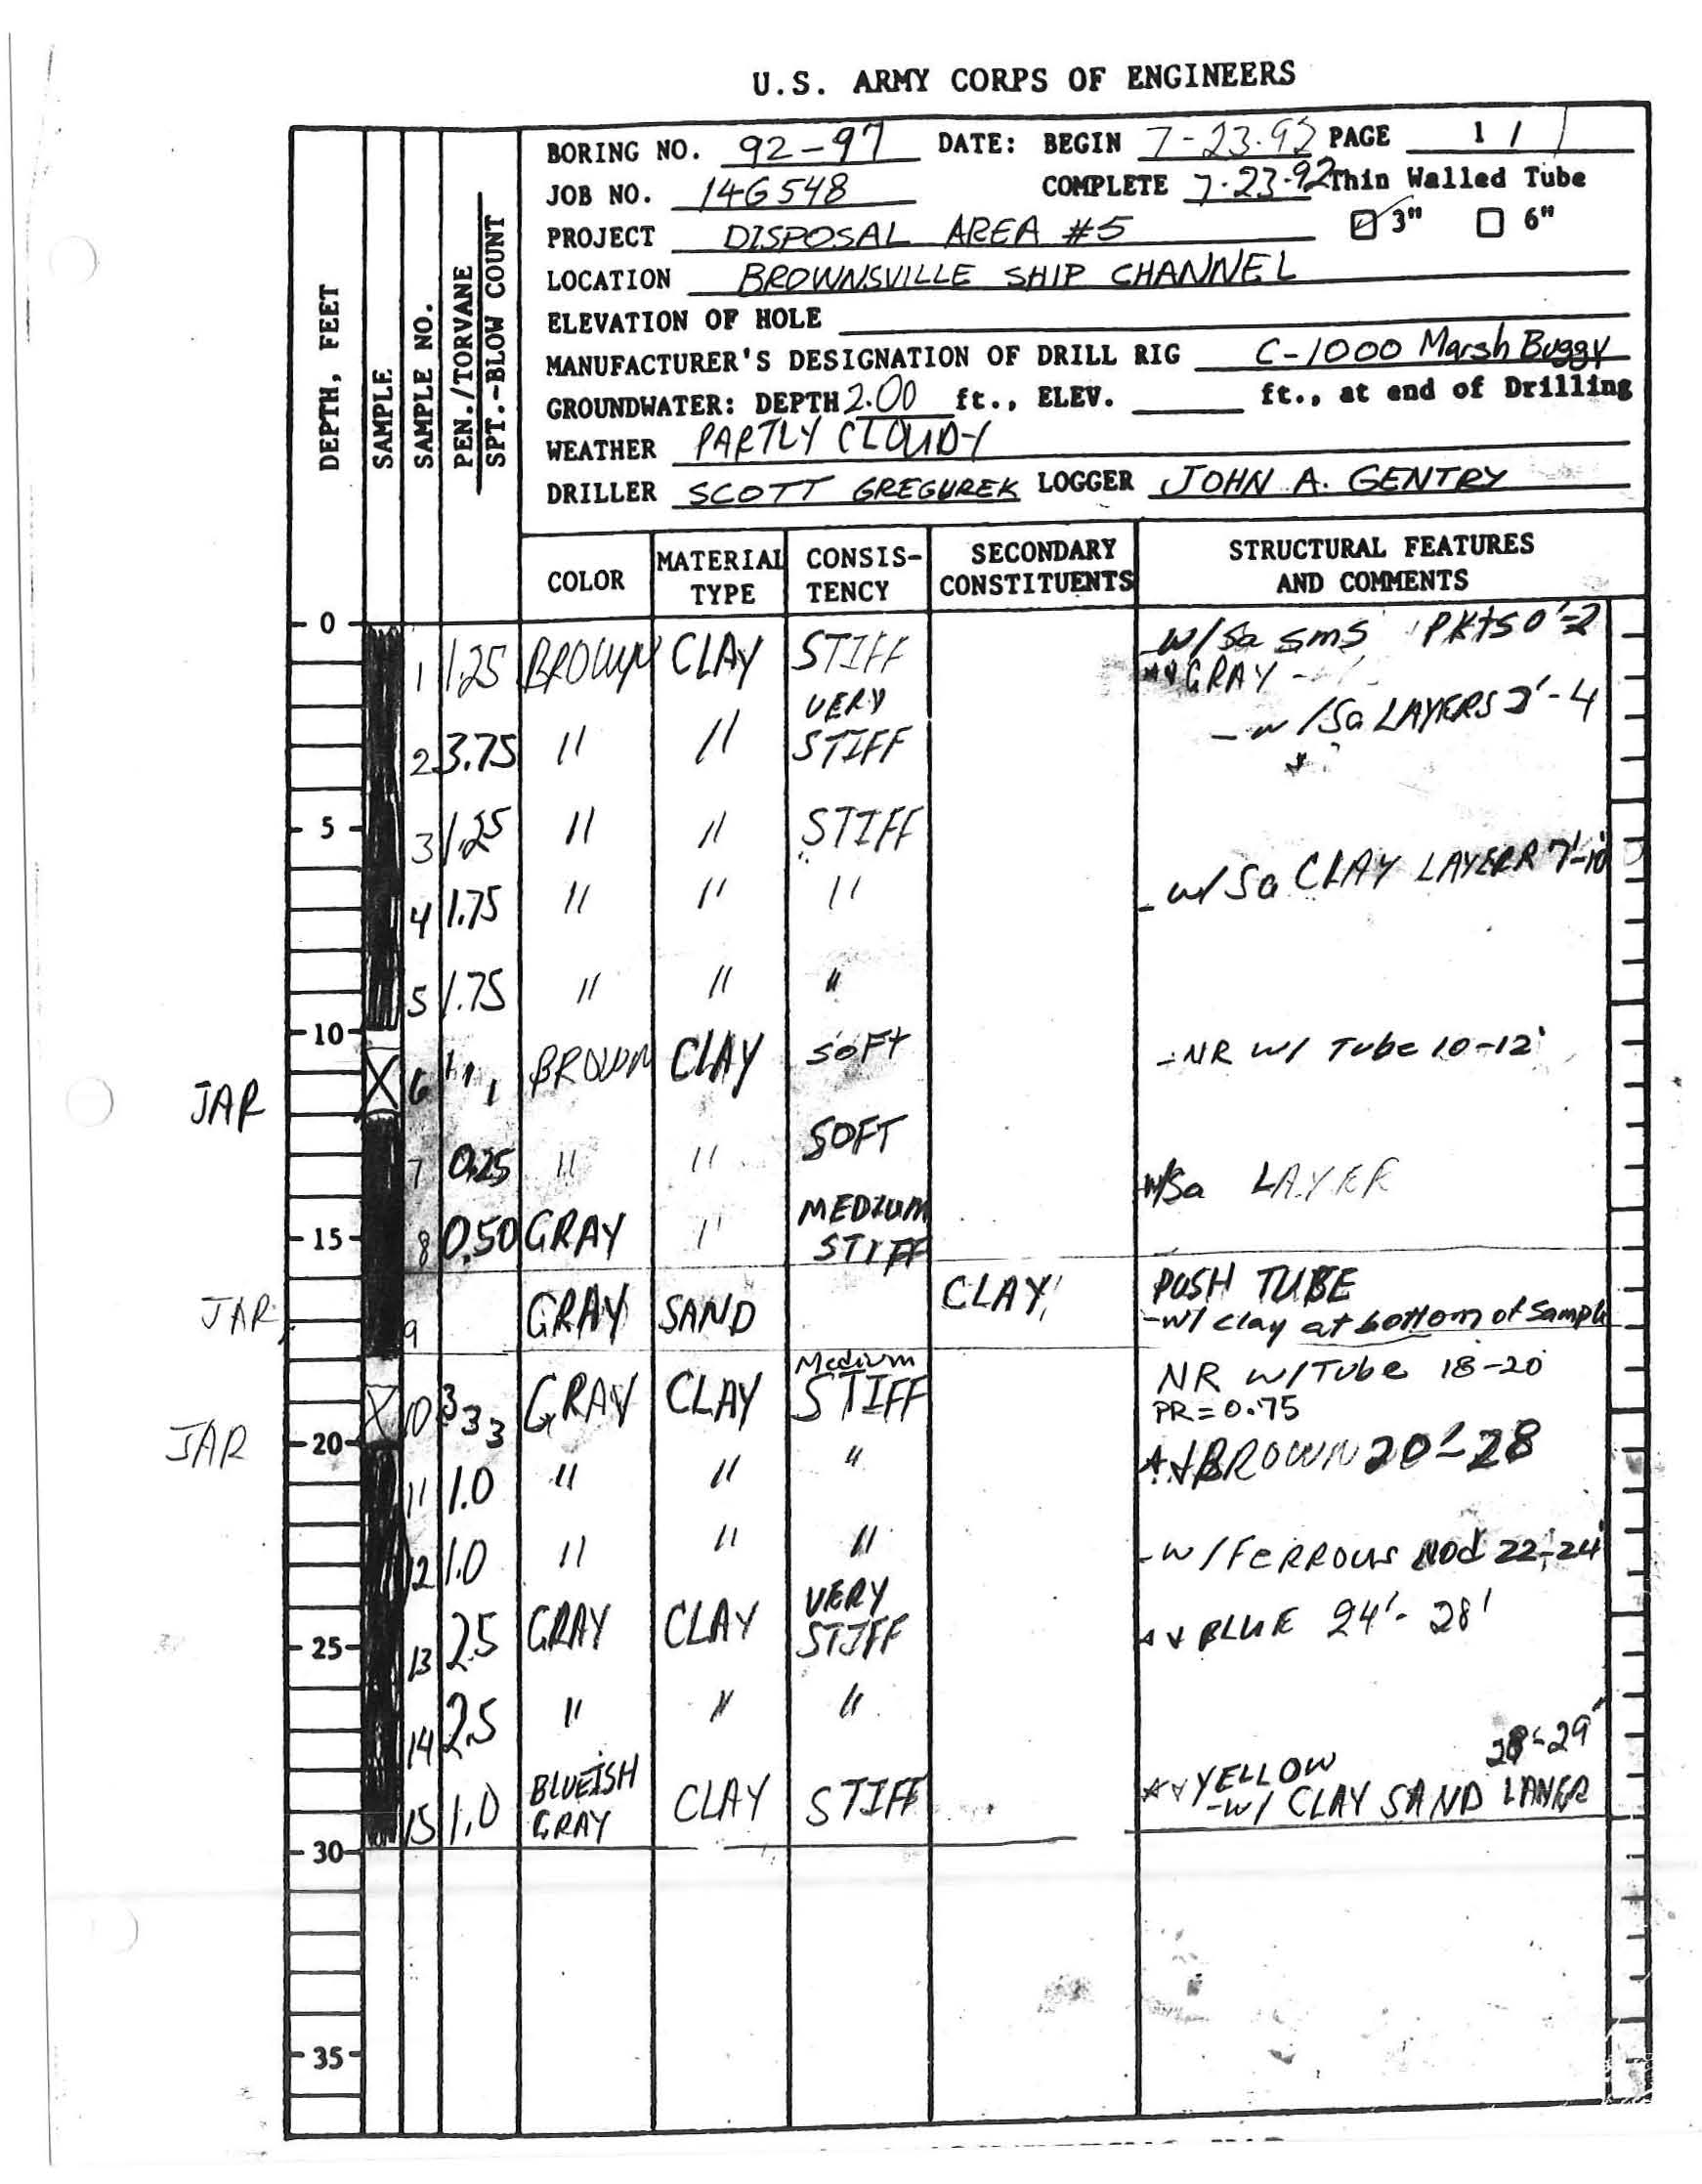 U.S. ARMY CORPS OF ENGINEERS
BORING NO. 92-97 DATE: BEGIN 7-23-92 PAGE 1 / 1
JOB NO. 14G548 COMPLETE 7-23-92 Thin Walled Tube
PROJECT DISPOSAL AREA #5 ☑ 3" ☐ 6"
LOCATION BROWNSVILLE SHIP CHANNEL
ELEVATION OF HOLE
MANUFACTURER'S DESIGNATION OF DRILL RIG C-1000 Marsh Buggy
GROUNDWATER: DEPTH 2.00 ft., ELEV. ft., at end of Drilling
WEATHER PARTLY CLOUDY
DRILLER SCOTT GREGUREK LOGGER JOHN A. GENTRY
DEPTH, FEET
SAMPLE
SAMPLE NO.
PEN./TORVANE
SPT.-BLOW COUNT
COLOR MATERIAL TYPE CONSIS-TENCY SECONDARY CONSTITUENTS STRUCTURAL FEATURES AND COMMENTS
0
1 1.25 BROWN CLAY STIFF -w/Sa sms PKTS 0'-2
GRAY -
2 3.75 " " VERY STIFF -w/Sa LAYERS 2'-4
5
3 1.25 " " STIFF
4 1.75 " " " -w/Sa CLAY LAYERR 7'-10'
5 1.75 " " "
10
JAR 6 1 1 1 BROWN CLAY SOFT -NR w/ Tube 10-12'
7 0.25 " " SOFT w/Sa LAYER
15
8 0.50 GRAY " MEDIUM STIFF
JAR 9 GRAY SAND CLAY PUSH TUBE
-w/ clay at bottom of Sample
JAR 10 3 3 3 GRAY CLAY Medium STIFF NR w/Tube 18-20'
PR=0.75
20
11 1.0 " " " BROWN 20'-28
12 1.0 " " " -w/FERROUS NOd 22'-24'
25
13 2.5 GRAY CLAY VERY STIFF BLUE 24'-28'
14 2.5 " " "
15 1.0 BLUEISH GRAY CLAY STIFF YELLOW 28'-29'
-w/ CLAY SAND LAYER
30
35